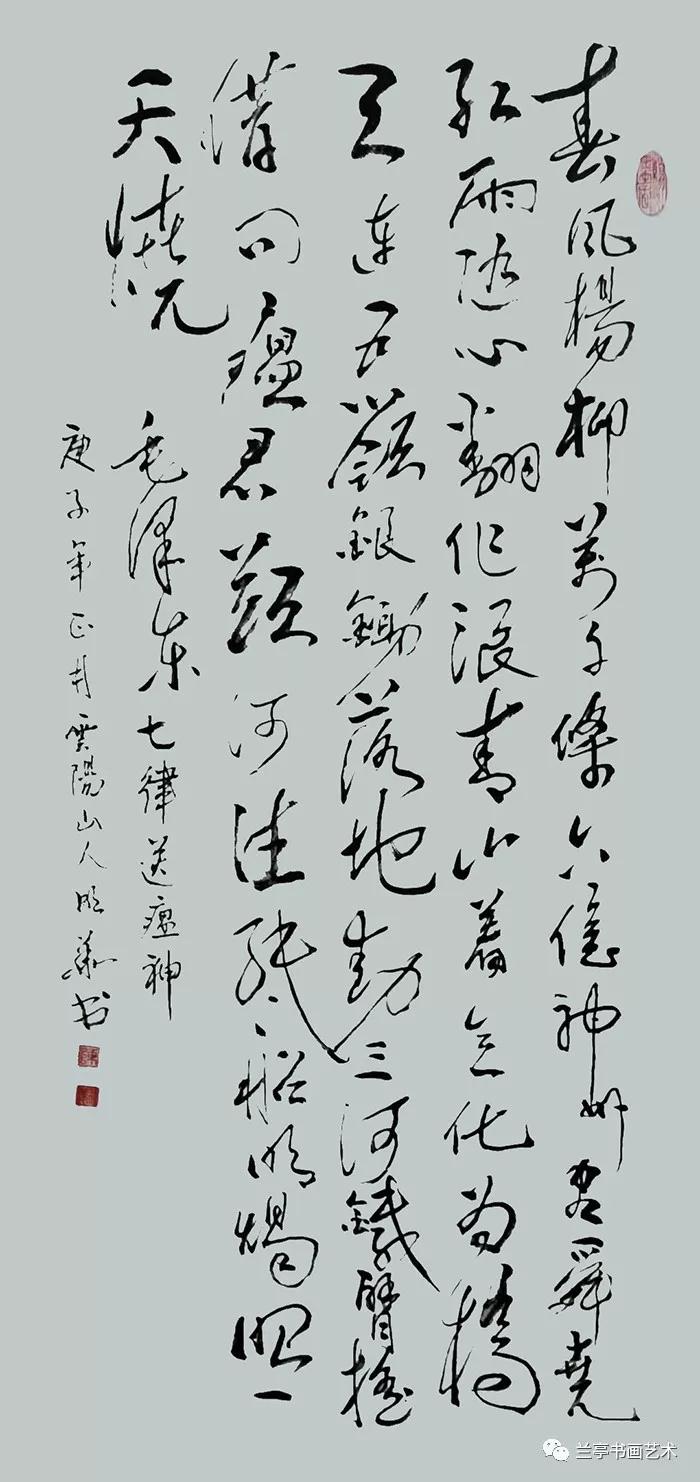 春風楊柳萬千條六億神州盡舜堯
紅雨随心翻作浪青山着意化为橋
天連五嶺銀鋤落地動三河鐵臂搖
借问瘟君欲何往紙船明燭照一
天燒
毛澤東七律送瘟神
庚子年正月雲陽山人明華书
兰亭书画艺术